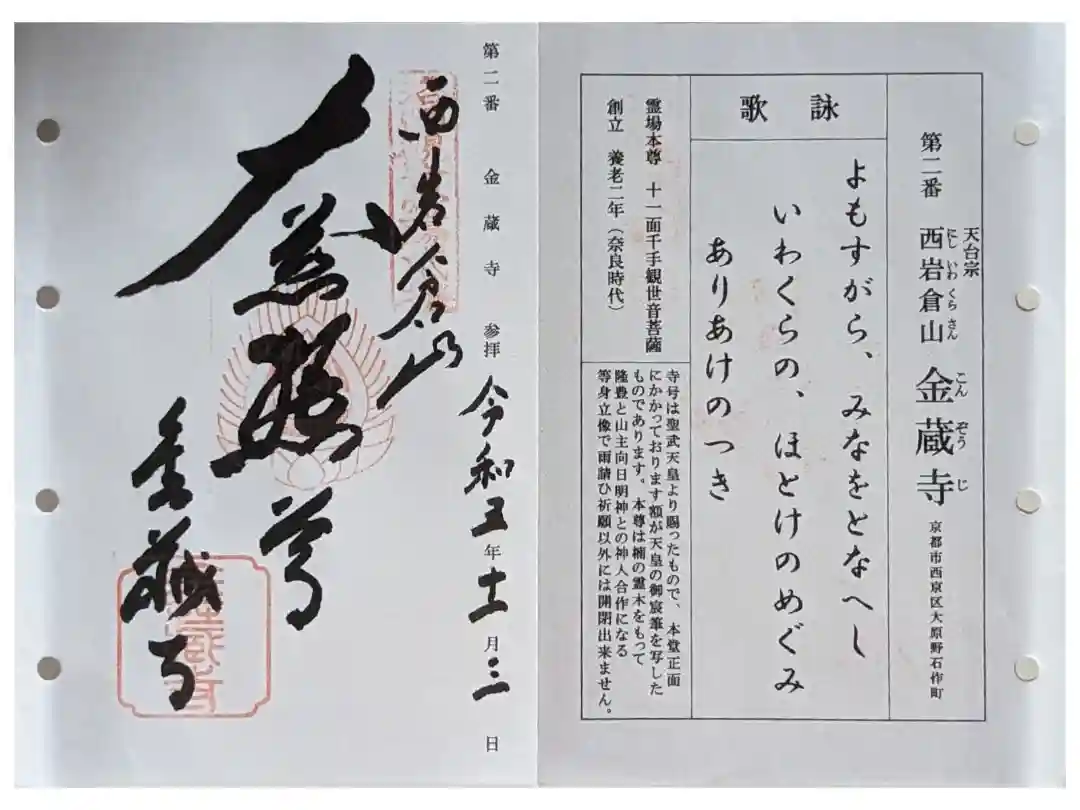 天台宗
第二番 西岩倉山 金蔵寺 京都市西京区大原野石作町
にし いわ くら さん こん ぞう じ
詠歌
よもすがら、みなをとなへし
いわくらの、ほとけのめぐみ
ありあけのつき
霊場本尊 十一面千手観世音菩薩
創立 養老二年(奈良時代)
寺号は聖武天皇より賜ったもので、本堂正面
にかかっております額が天皇の御宸筆を写した
ものであります。本尊は楠の霊木をもって
隆豊と山主向日明神との神人合作になる
等身立像で雨請ひ祈願以外には開閉出来ません。
第二番 金蔵寺 参拝 令和五年十一月三日
西岩倉山
大慈 尊
金蔵寺